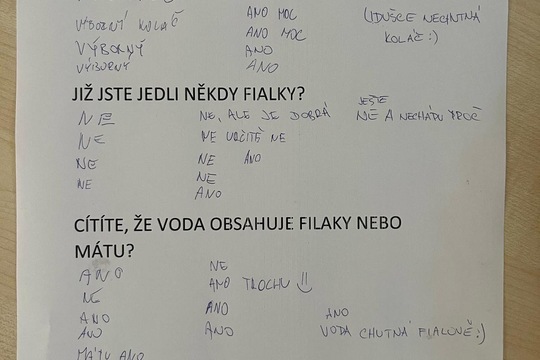 VÝBORNÝ KOLÁČ ANO MOC (IDUŠCE NECHUTNÁ
VÝBORNÝ ANO MOC KOLÁČ :)
VÝBORNÝ ANO
ANO
JIŽ JSTE JEDLI NĚKDY FIALKY?
NE NE, ALE JE DOBRÁ JEŠTĚ
NE NE URČITĚ NE NE A NECHÁPU PROČ
NE NE ANO
NE NE
ANO
CÍTÍTE, ŽE VODA OBSAHUJE FILAKY NEBO
MÁTU?
ANO NE
NE ANO TROCHU
ANO ANO ANO
ANO ANO VODA CHUTNÁ FIALOVĚ :)
MÁTU ANO